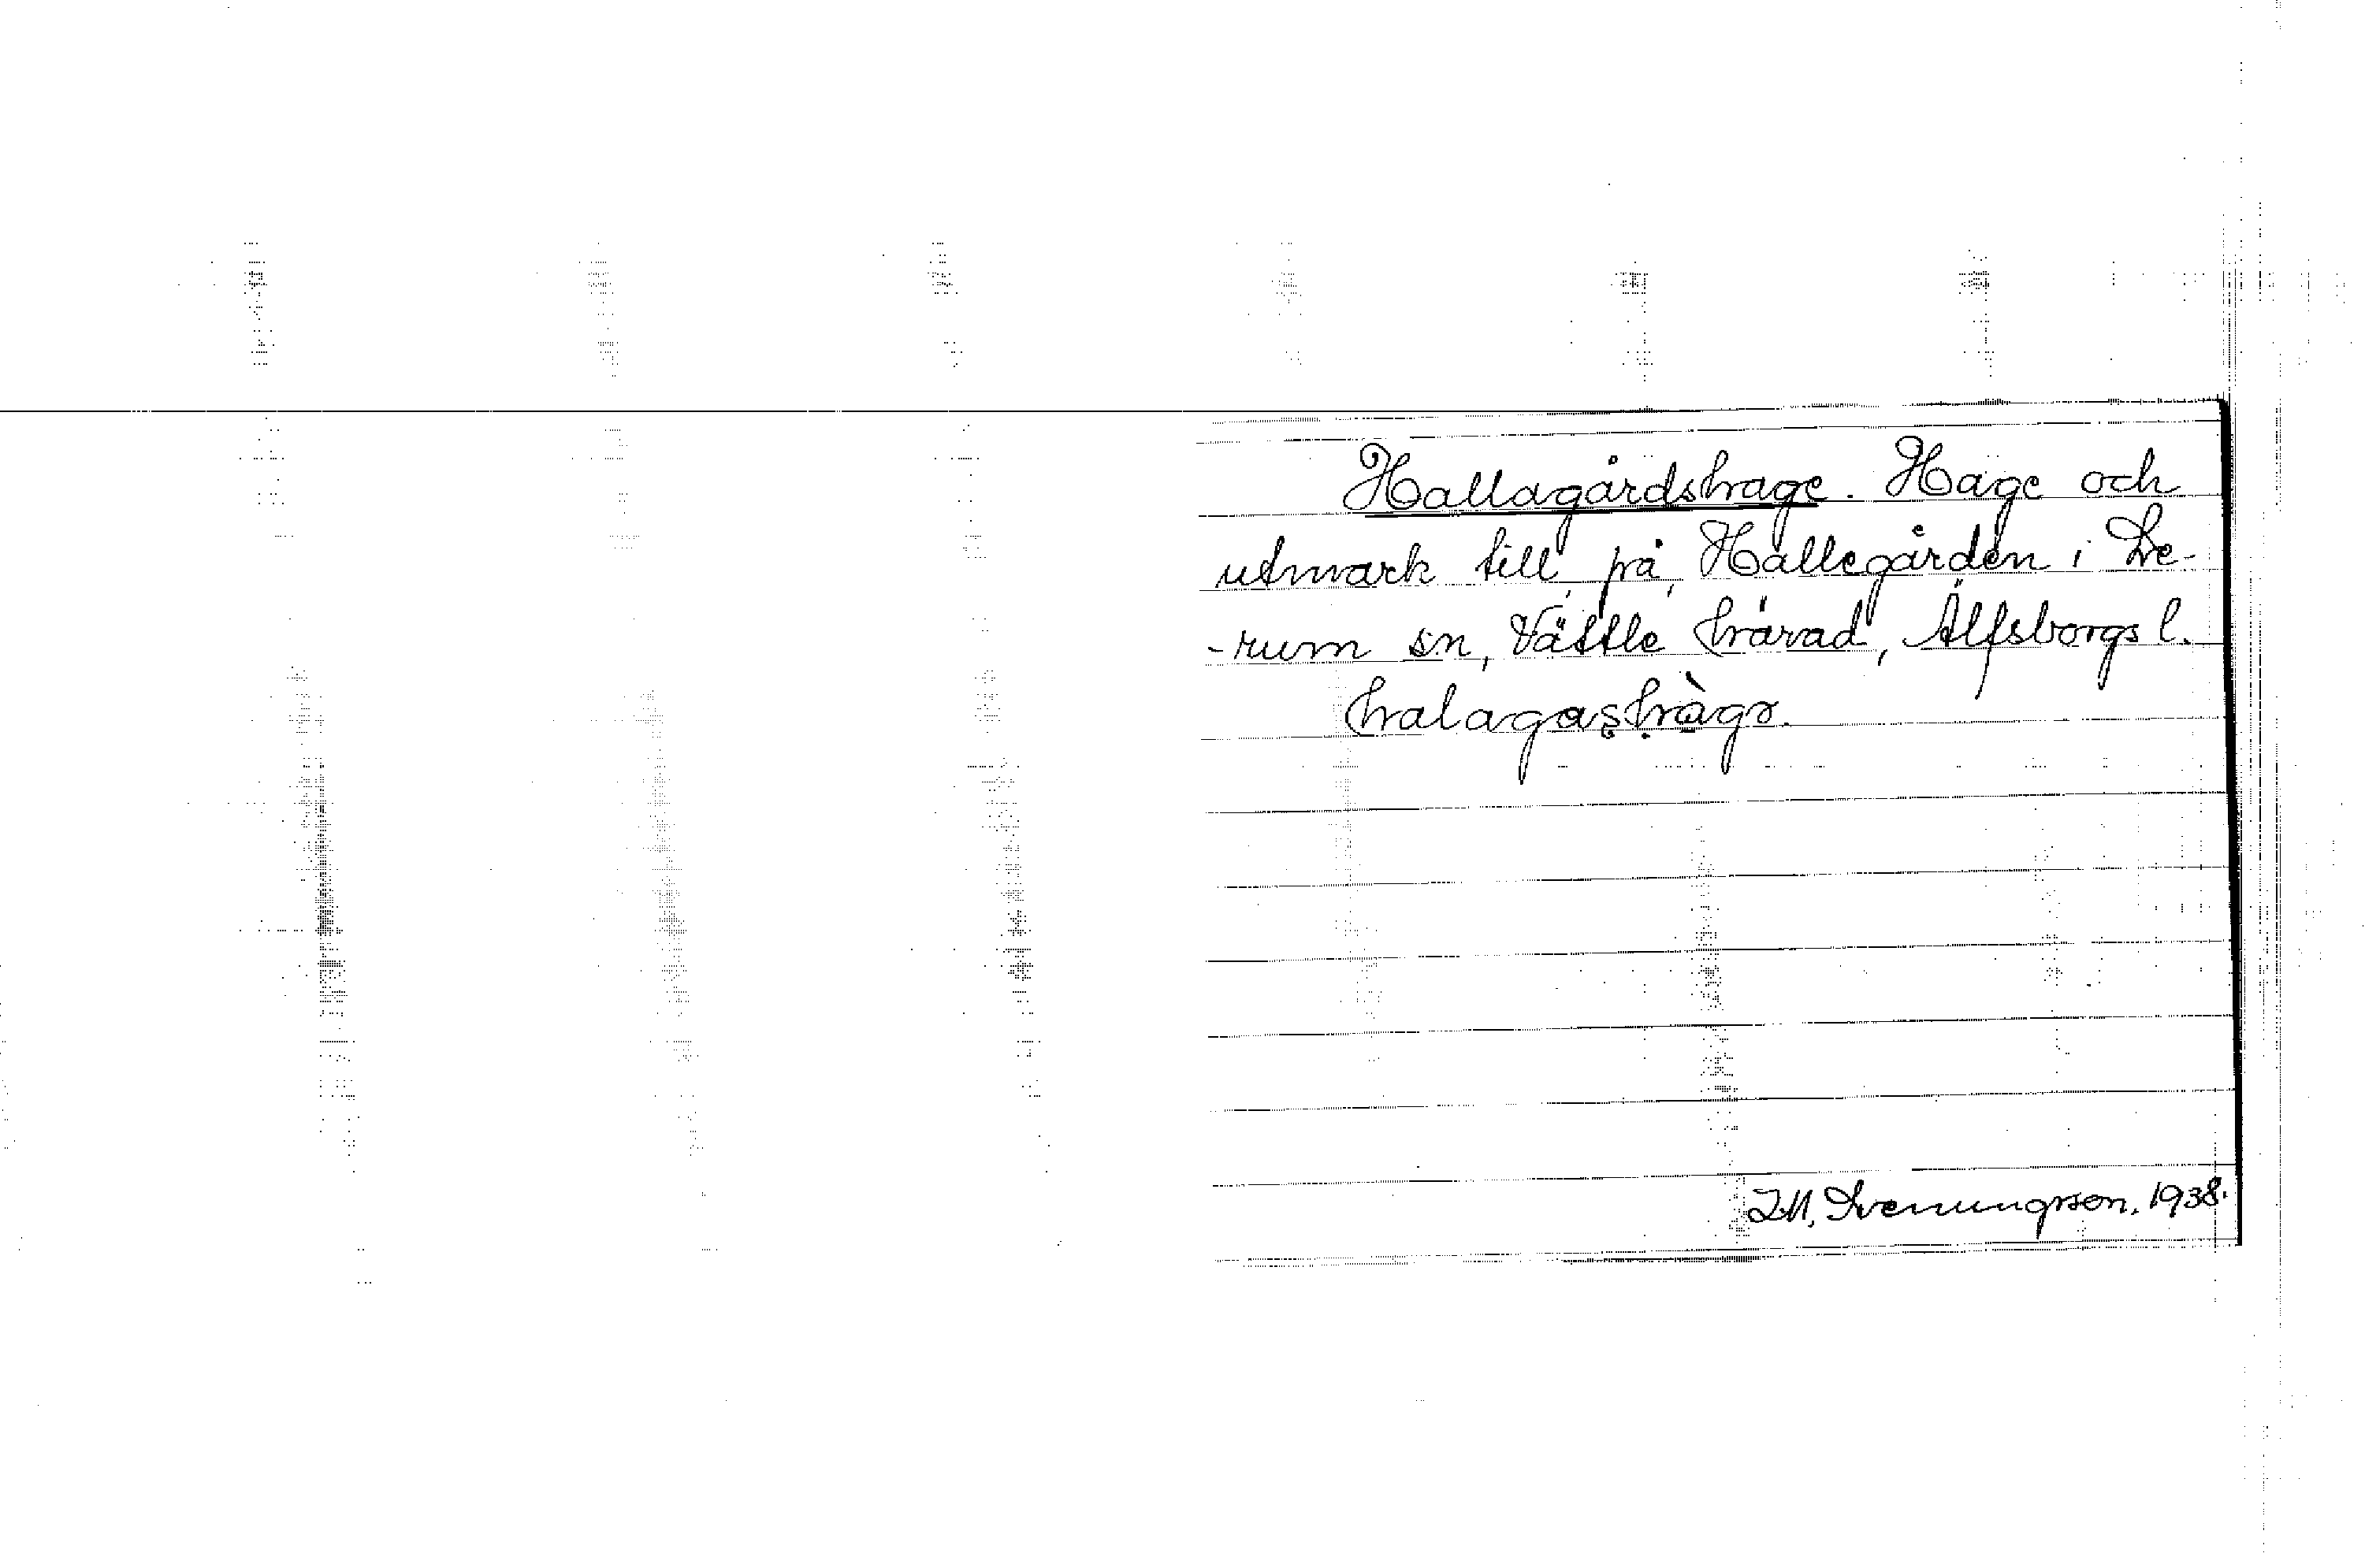 Hallagårdshage. Hage och
utmark till på Hallegården i Le-
-rum sn, Vättle härad, Älfsborgs l.
halagashàgɷ.
I.M. Svenungsson, 1938.